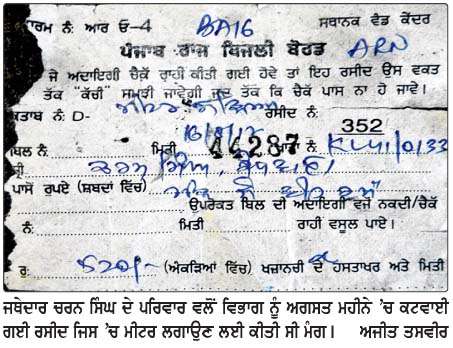 ਫਾਰਮ ਨੰ: ਆਰ ਓ-4 BA16 ਸਥਾਨਕ ਵੰਡ ਕੇਂਦਰ
ਪੰਜਾਬ ਰਾਜ ਬਿਜਲੀ ਬੋਰਡ ARN
ਜੇ ਅਦਾਇਗੀ ਚੈੱਕਾਂ ਰਾਹੀਂ ਕੀਤੀ ਗਈ ਹੋਵੇ ਤਾਂ ਇਹ ਰਸੀਦ ਉਸ ਵਕਤ
ਤੱਕ “ਕੱਚੀ” ਸਮਝੀ ਜਾਵੇਗੀ ਜਦ ਤੱਕ ਕਿ ਚੈਕ ਪਾਸ ਨਾ ਹੋ ਜਾਵੇ।
ਕਤਾਬ ਨੰ: D- ਰਸੀਦ ਨੰ: 352
ਬਿਲ ਨੰ: ਮਿਤੀ 44287 ਨੰ:
ਸ੍ਰੀ
ਪਾਸੋਂ ਰੁਪਏ (ਸ਼ਬਦਾਂ ਵਿੱਚ)
ਉਪਰੋਕਤ ਬਿਲ ਦੀ ਅਦਾਇਗੀ ਵਜੋਂ ਨਕਦੀ/ਚੈੱਕਾਂ
ਨੰ: ਮਿਤੀ ਰਾਹੀਂ ਵਸੂਲ ਪਾਏ।
ਰੁ: 520/- (ਅੰਕੜਿਆਂ ਵਿੱਚ) ਖਜ਼ਾਨਚੀ ਦੇ ਹਸਤਾਖਰ ਅਤੇ ਮਿਤੀ
ਜਥੇਦਾਰ ਚਰਨ ਸਿੰਘ ਦੇ ਪਰਿਵਾਰ ਵਲੋਂ ਵਿਭਾਗ ਨੂੰ ਅਗਸਤ ਮਹੀਨੇ ’ਚ ਕਟਵਾਈ
ਗਈ ਰਸੀਦ ਜਿਸ ’ਚ ਮੀਟਰ ਲਗਾਉਣ ਲਈ ਕੀਤੀ ਸੀ ਮੰਗ। ਅਜੀਤ ਤਸਵੀਰ